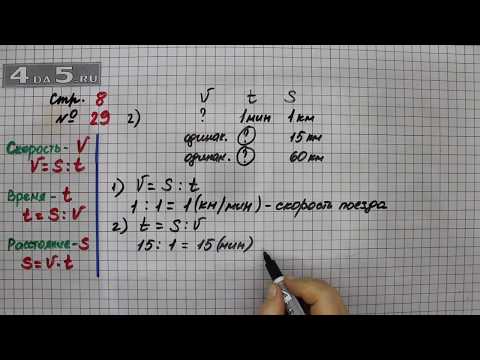 4 DA 5.RU
Стр. 8
№ 29 2)
V t S
? 1 мин 1 км
одинак. ? 15 км
одинак. ? 60 км
Скорость - V
V = S : t
Время - t
t = S : V
Расстояние - S
S = V · t
1) V = S : t
1 : 1 = 1 (км/мин) - скорость поезда
2) t = S : V
15 : 1 = 15 (мин)